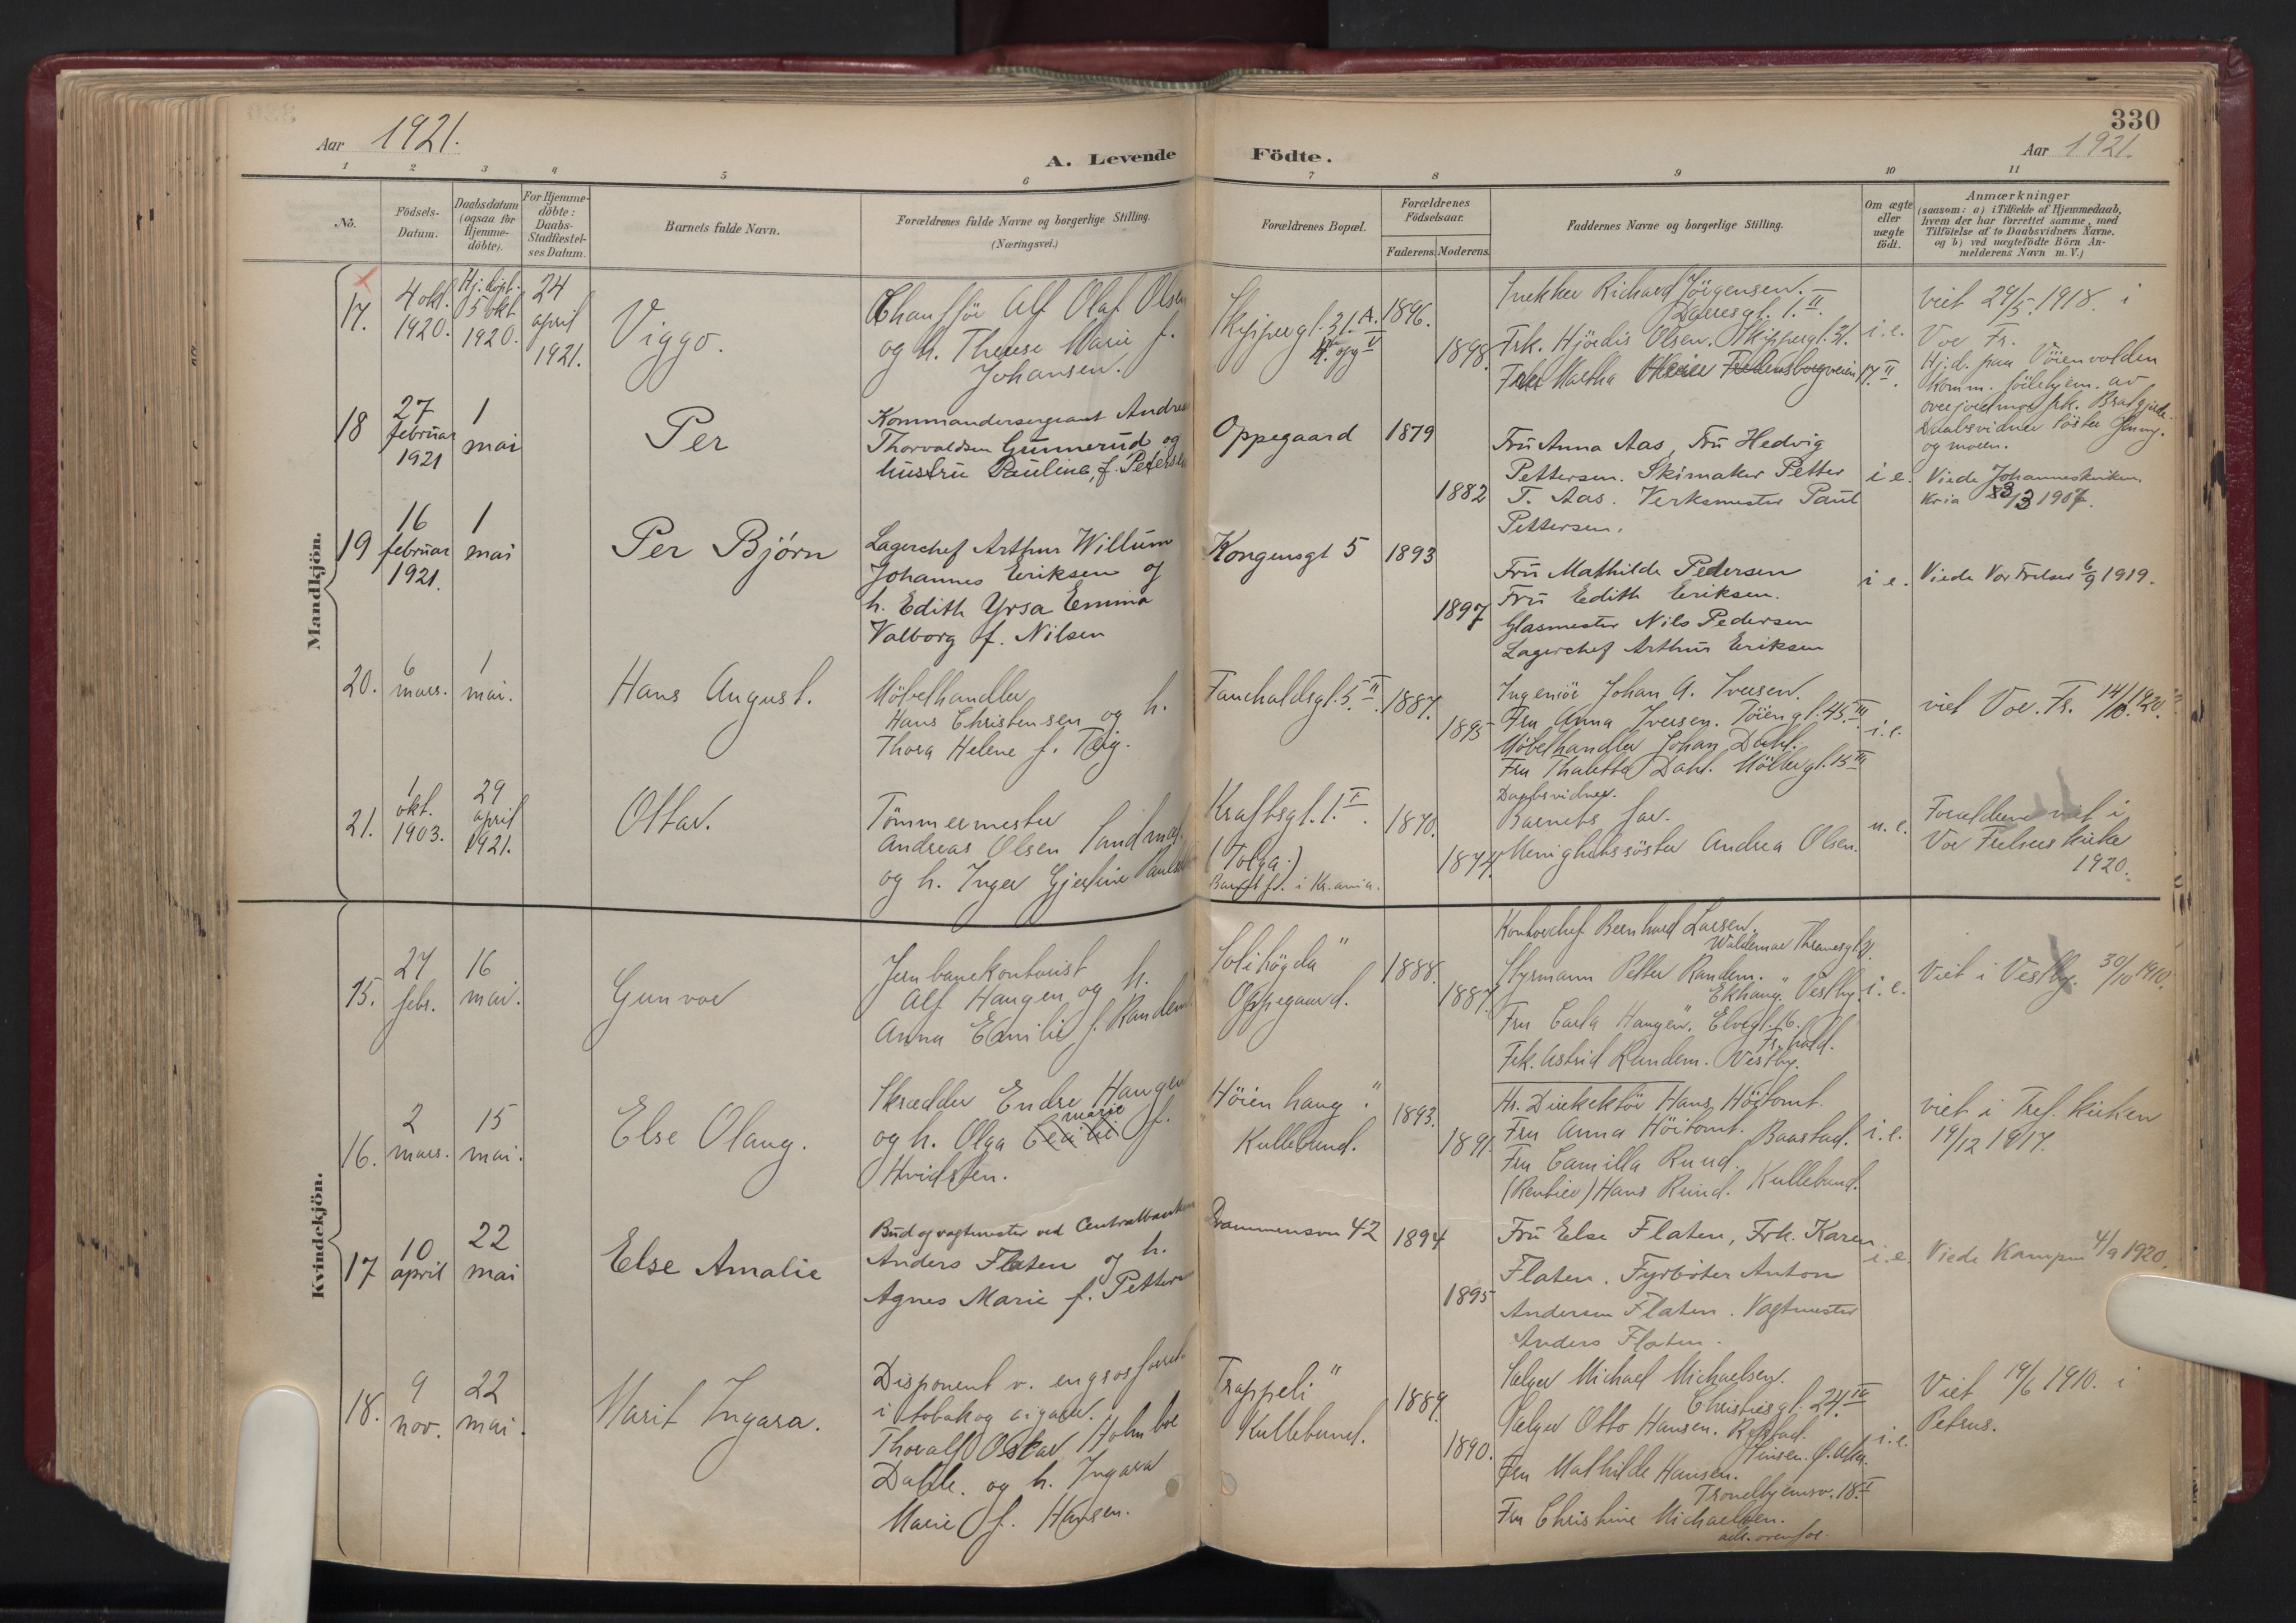 330
Aar 1921.
A. Levende Födte.
Aar 1921.
1 2 3 4 5 6 7 8 9 10 11
No.
Födsels-
Datum.
Daabsdatum
(ogsaa for
Hjemme-
döbte).
For Hjemme-
döbte:
Daabs-
Stadfæstel-
ses Datum.
Barnets fulde Navn.
Forældrenes fulde Navne og borgerlige Stilling.
(Næringsvei.)
Forældrenes Bopæl.
Forældrenes
Födselsaar.
Faderens. Moderens.
Faddernes Navne og borgerlige Stilling.
Om ægte
eller
uægte
födt.
Anmærkninger
(saasom: a) i Tilfælde af Hjemmedaab,
hvem der har forrettet samme, med
Tilföielse af to Daabsvidners Navne.
og b) ved uægtefödte Börn An-
melderens Navn m. V.)
Mandkjön.
17.
4 okt.
1920.
Hj. döpt.
5 okt
1920.
24
april
1921.
Viggo.
Chaufför Alf Olaf Olsen
og h. Therese Marie f.
Johansen.
Skippergt. 31. A.
1896.
1898.
Snekker Richard Jörgensen.
Frk. Hjördis Olsen. Skippergt. 31.
Martha
i. e.
viet 29/5. 1918. i
Vor Fr.
Hj. d. paa Vöienvolden
Komm. föilehjem. av
overjordmor frk. Bratgjerde.
Daabsvidner söster Jenny.
og moren.
18
27
februar
1921
1
mai
Per
Kommandersergeant Andreas
Thorvaldsen Gunnerud og
hustru Paulina, f. Petersen
Oppegaard
1879
1882
Fru Anna Aas, Fru Hedvig
Pettersen. Skimaker Petter
T. Aas. Verksmester Paul
Pettersen.
i e.
Viede Johanneskirken.
Kria 3 1907.
19
16
februar
1921.
1
mai
Per Bjørn
Lagerchef Arthur Willum
Johannes Eriksen og
h. Edith Yrsa Emma
Valborg f. Nilsen
Kongensgt 5
1893
1897
Fru Mathilde Pedersen
Fru Edith Eriksen.
Glasmester Nils Pedersen
Lagerchef Arthur Eriksen
i e.
Viede Vor Frelser 6/9 1919.
20.
6
mars.
1
mai.
Hans August.
Möbelhandler
Hans Christensen og h.
Thora Helene f. Teig.
Fauchaldsgt. 5. II.
1887.
1895
Ingeniör Johan A. Iversen.
Fru Anna Iversen. Töiengt. 45. III
Möbelhandler Johan Dahl.
Fru Thaletta Dahl. Möllergt. 15 III
i. e.
viet Vor. Fr. 14/10. 1920.
21.
1
okt.
1903.
29
april
1921.
Ottar.
Tömmermester
Andreas Olsen Sandmæl.
og h. Inger Gjertine Paulsen
Kraftsgt. 1. V.
(Tolga.)
Barnet fd. i Kr.ania.
1870.
1874.
Daabsvidner.
Barnets far.
Menighetssöster Andrea Olsen.
u. e.
Foreldrene viet i
Vor Frelsers kirke
1920.
Kvindekjön.
15.
27
febr.
16
mai.
Gunvor
Jernbanekontorist
Alf Haugen og h.
Anna Emilie f. Randem.
"Solihögda"
Oppegaard.
1888.
1887.
Kontorchef Bernhard Larsen.
Waldemar Thranesgt 21.
Styrmann Petter Randem.
"Ekhaug". Vestby.
Fru Carla Haugen. Elvegt. 16.
Fr.hald.
Frk. Astrid Randem. Vestby.
i. e.
Viet i Vestby. 30/10 1910.
16.
2
mars.
15
mai.
Else Olaug.
Skrædder Endre Haugen
og h. Olga Cecilie marie f.
Hvidsten.
"Höienhaug".
Kullebund.
1893.
1891.
Hr. Direkektör Hans Höitomt.
Fru Anna Höitomt. Baastad.
Fru Camilla Ruud.
(Rentier) Hans Ruud. Kullebund.
i. e.
viet i Tref. kirken
19/12 1917.
17
10
april
22
mai
Else Amalie
Bud og vagtmester ved Centralbanken
Anders Flaten og h.
Agnes Marie f. Pettersen
Drammensvn 42
1894
1895
Fru Else Flaten, Frk. Karen
Flaten. Fyrbøter Anton
Andersen Flaten. Vagtmester
Anders Flaten.
i. e.
Viede Kampen 4/9 1920.
18.
9
nov.
22
mai.
Marit Ingara.
Disponent v. engrosforret.
i tobak og cigarer.
Thoralf Oskar Holmboe
Dahle. og h. Ingara
Marie f. Hansen.
"Trappeli"
Kullebund.
1889.
1890.
Selger Michael Michaelsen.
Christiesgt. 24. IV
Selger Otto Hansen.
Fru Mathilde Hansen.
Trondhjemsv. 18. I
Fru Christine Michaelsen.
adr. ovenfor.
i. e.
Viet 19/6 1910. i
Petrus.